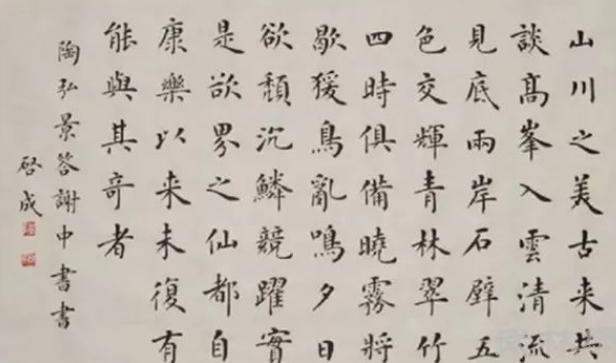 山川之美古来共
談高峯入雲清流
見底兩岸石壁五
色交輝青林翠竹
四時俱備曉霧將
歇猨鳥亂鳴夕日
欲頹沉鱗競躍實
是欲界之仙都自
康樂以来未復有
能與其奇者
陶弘景答謝中書書
啓成